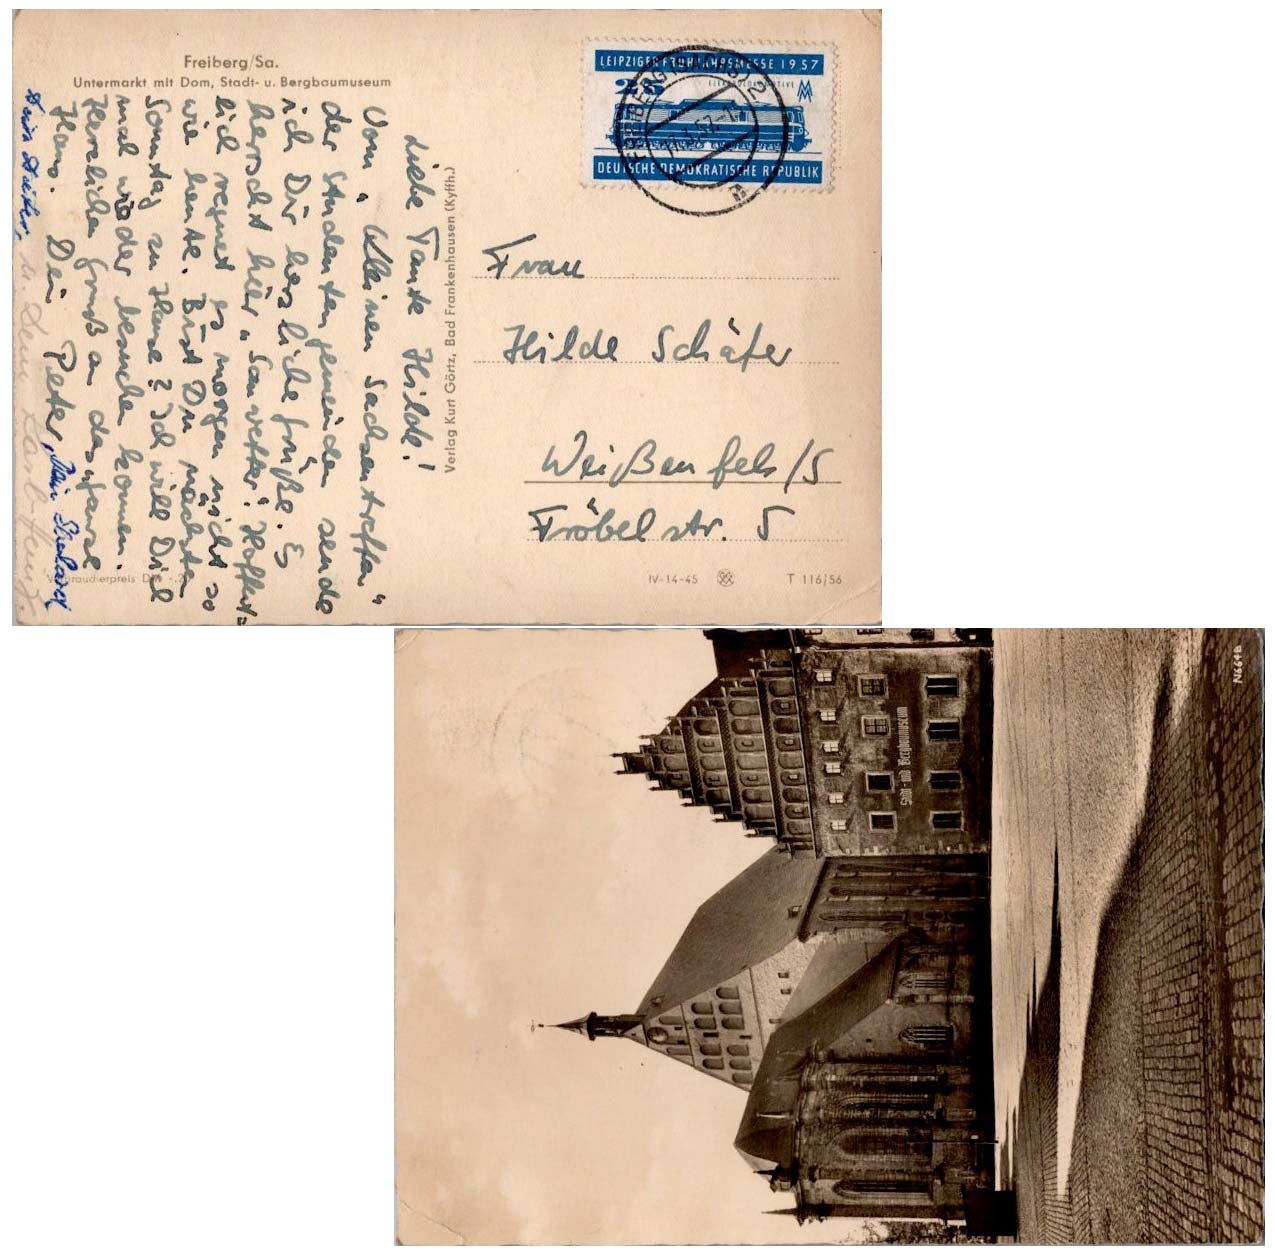 Freiberg/Sa.
Untermarkt mit Dom, Stadt- u. Bergbaumuseum
Liebe Tante Hilde!
Vom "kleinen Sachsentreffen"
der Studentengemeinden sende
ich Dir herzliche Grüße. Es
herrscht hier "Sauwetter". Hoffent=
lich regnet es morgen nicht so
wie heute. Bist Du nächsten
Sonntag zu Hause? Ich will Dich
mal wieder besuchen kommen.
Herzliche Grüße an das ganze
Haus. Dein Peter, Dein
Dein Dieter, u. Dein
Verbraucherpreis DM -.20
Verlag Kurt Görtz, Bad Frankenhausen (Kyffh.)
LEIPZIGER FRÜHJAHRSMESSE 1957
25
ELEKTROLOKOMOTIVE
MM
DEUTSCHE DEMOKRATISCHE REPUBLIK
FREIBERG (SACHS) 2
.3.57.-1
Frau
Hilde Schäfer
Weißenfels/S
Fröbelstr. 5
IV-14-45 T 116/56
Stadt- und Bergbaumuseum
N664B